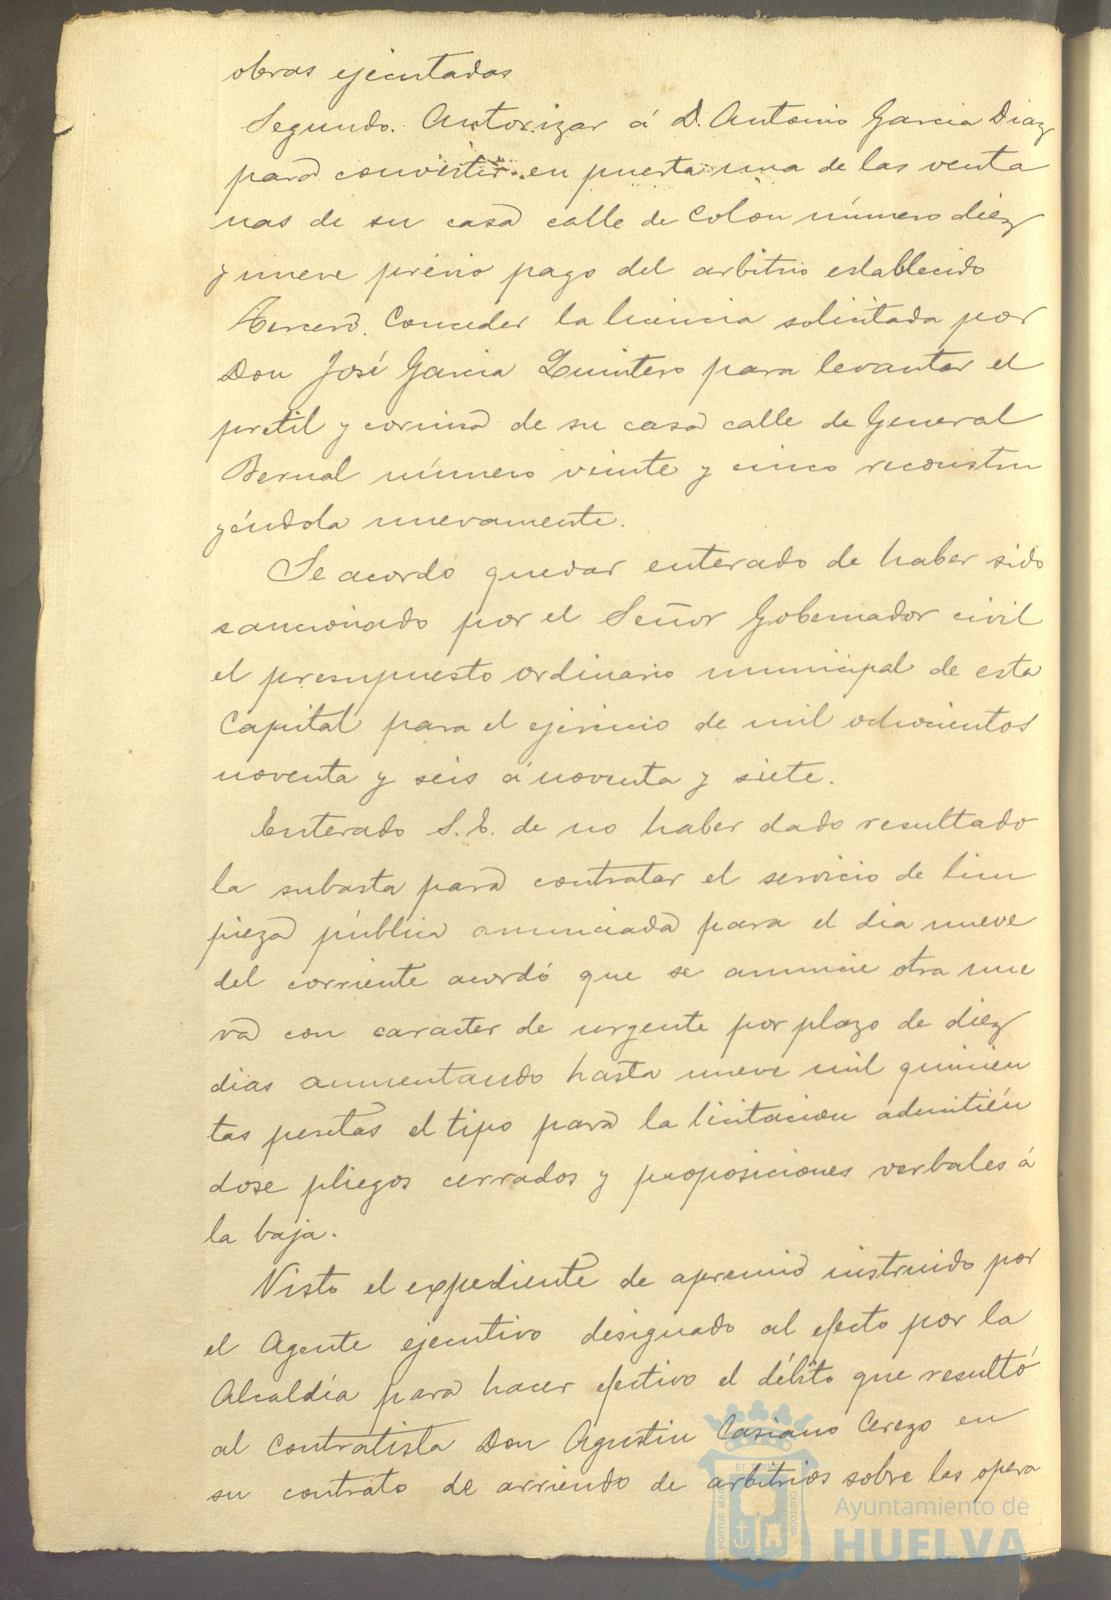 obras ejecutadas
Segundo. Autorizar á D. Antonio Garcia Diaz
para convertir en puerta una de las venta
nas de su casa calle de Colon número diez
y nueve prévio pago del arbitrio establecido
Tercero. Conceder la licencia solicitada por
Don José Garcia Quintero para levantar el
pretil y cornisa de su casa calle de General
Bernal número veinte y cinco reconstru
yéndola nuevamente.
Se acordó quedar enterado de haber sido
sancionado por el Señor Gobernador civil
el presupuesto ordinario municipal de esta
Capital para el ejercicio de mil ochocientos
noventa y seis á noventa y siete.
Enterado S. E. de no haber dado resultado
la subasta para contratar el servicio de lim
pieza pública anunciada para el dia nueve
del corriente acordó que se anuncie otra nue
va con caracter de urgente por plazo de diez
dias aumentando hasta nueve mil quinien
tas pesetas el tipo para la licitacion admitién
dose pliegos cerrados y proposiciones verbales á
la baja.
Visto el expediente de apremio instruido por
el Agente ejecutivo designado al efecto por la
Alcaldía para hacer efectivo el débito que resultó
al contratista Don Agustin Casiano Cerezo en
su contrato de arriendo de arbitrios sobre las opera
Ayuntamiento de
HUELVA